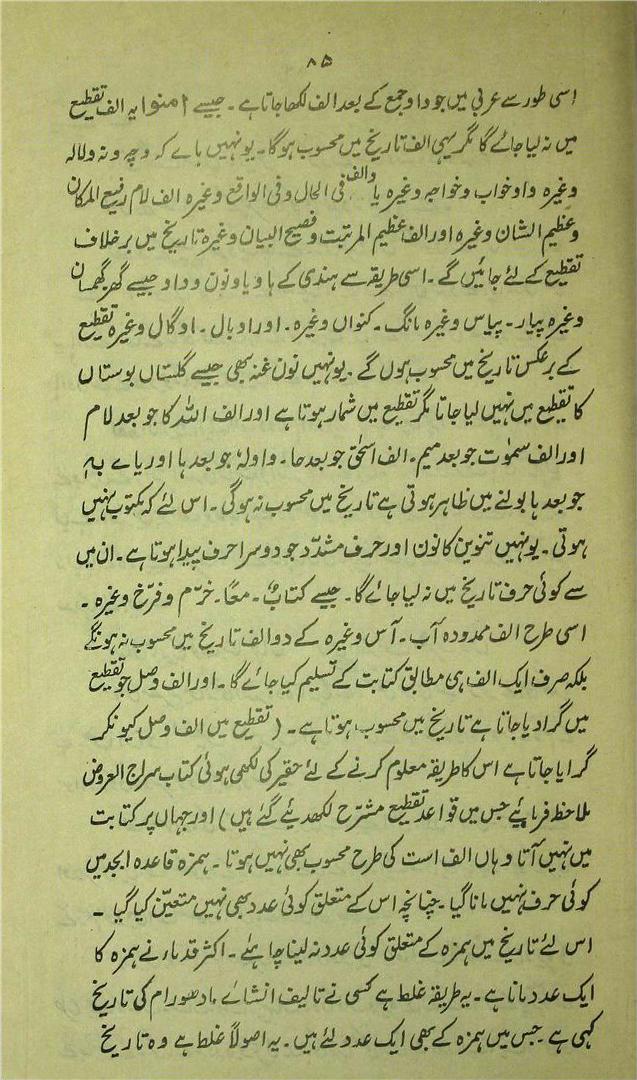 ۸۵
اسی طور سے عربی میں جو واو جمع کے بعد الف لکھا جاتا ہے ۔ جیسے اٰمنوا یہ الف تقطیع
میں نہ لیا جائے گا مگر یہی الف تاریخ میں محسوب ہوگا ۔ یونہیں ہاے کہ وچہ ونہ ولالہ
وغیرہ واو خواب وخواجہ وغیرہ یا والف فی الحال وفی الواقع وغیرہ الف لام رفیع المکان
وعظیم الشان وغیرہ اور الف عظیم المرتبت وفصیح البیان وغیرہ تاریخ میں برخلاف
تقطیع کے لئے جائیں گے ۔ اسی طریقہ سے ہندی کے ہا ویا ونون وواو جیسے گھر گھمسان
وغیرہ پیار ۔ پیاس وغیرہ مانگ ۔ کنواں وغیرہ ۔ اور اوبال ۔ اوگال وغیرہ تقطیع
کے برعکس تاریخ میں محسوب ہوں گے ۔ یونہیں نون غنہ بھی جیسے گلستاں بوستاں
کا تقطیع میں نہیں لیا جاتا مگر تقطیع میں شمار ہوتا ہے اور الف اللہ کا جو بعد لام
اور الف سمٰوت جو بعد میم ۔ الف اسحٰق جو بعد حا ۔ واو لہٗ جو بعد ہا اور یاے بہٖ
جو بعد ہا بولنے میں ظاہر ہوتی ہے تاریخ میں محسوب نہ ہوگی ۔ اس لئے کہ مکتوب نہیں
ہوتی ۔ یونہیں تنوین کا نون اور حرف مشدّد جو دوسرا حرف پیدا ہوتا ہے ۔ ان میں
سے کوئی حرف تاریخ میں نہ لیا جائے گا ۔ جیسے کتابٌ ۔ معًا ۔ خرّم و فرّخ وغیرہ ۔
اسی طرح الف ممدودہ آب ۔ آس وغیرہ کے دو الف تاریخ میں محسوب نہ ہونگے
بلکہ صرف ایک الف ہی مطابق کتابت کے تسلیم کیا جائے گا ۔ اور الف وصل جو تقطیع
میں گرا دیا جاتا ہے تاریخ میں محسوب ہوتا ہے ۔ ( تقطیع میں الف وصل کیونکر
گرایا جاتا ہے اس کا طریقہ معلوم کرنے کے لئے حقیر کی لکھی ہوئی کتاب سراج العروض
ملاحظہ فرمائیے جس میں قواعد تقطیع مشرّح لکھدیئے گئے ہیں ) اور جہاں پر کتابت
میں نہیں آتا وہاں الف است کی طرح محسوب بھی نہیں ہوتا ۔ ہمزہ قاعدہ ابجد میں
کوئی حرف نہیں مانا گیا چنانچہ اس کے متعلق کوئی عدد بھی نہیں متعیّن کیا گیا ۔
اس لئے تاریخ میں ہمزہ کے متعلق کوئی عدد نہ لینا چاہئے ۔ اکثر قدماء نے ہمزہ کا
ایک عدد مانا ہے ۔ یہ طریقہ غلط ہے کسی نے تالیف انشائے مادھورام کی تاریخ
کہی ہے جس میں ہمزہ کے بھی ایک عدد لئے ہیں ۔ یہ اصولاً غلط ہے وہ تاریخ